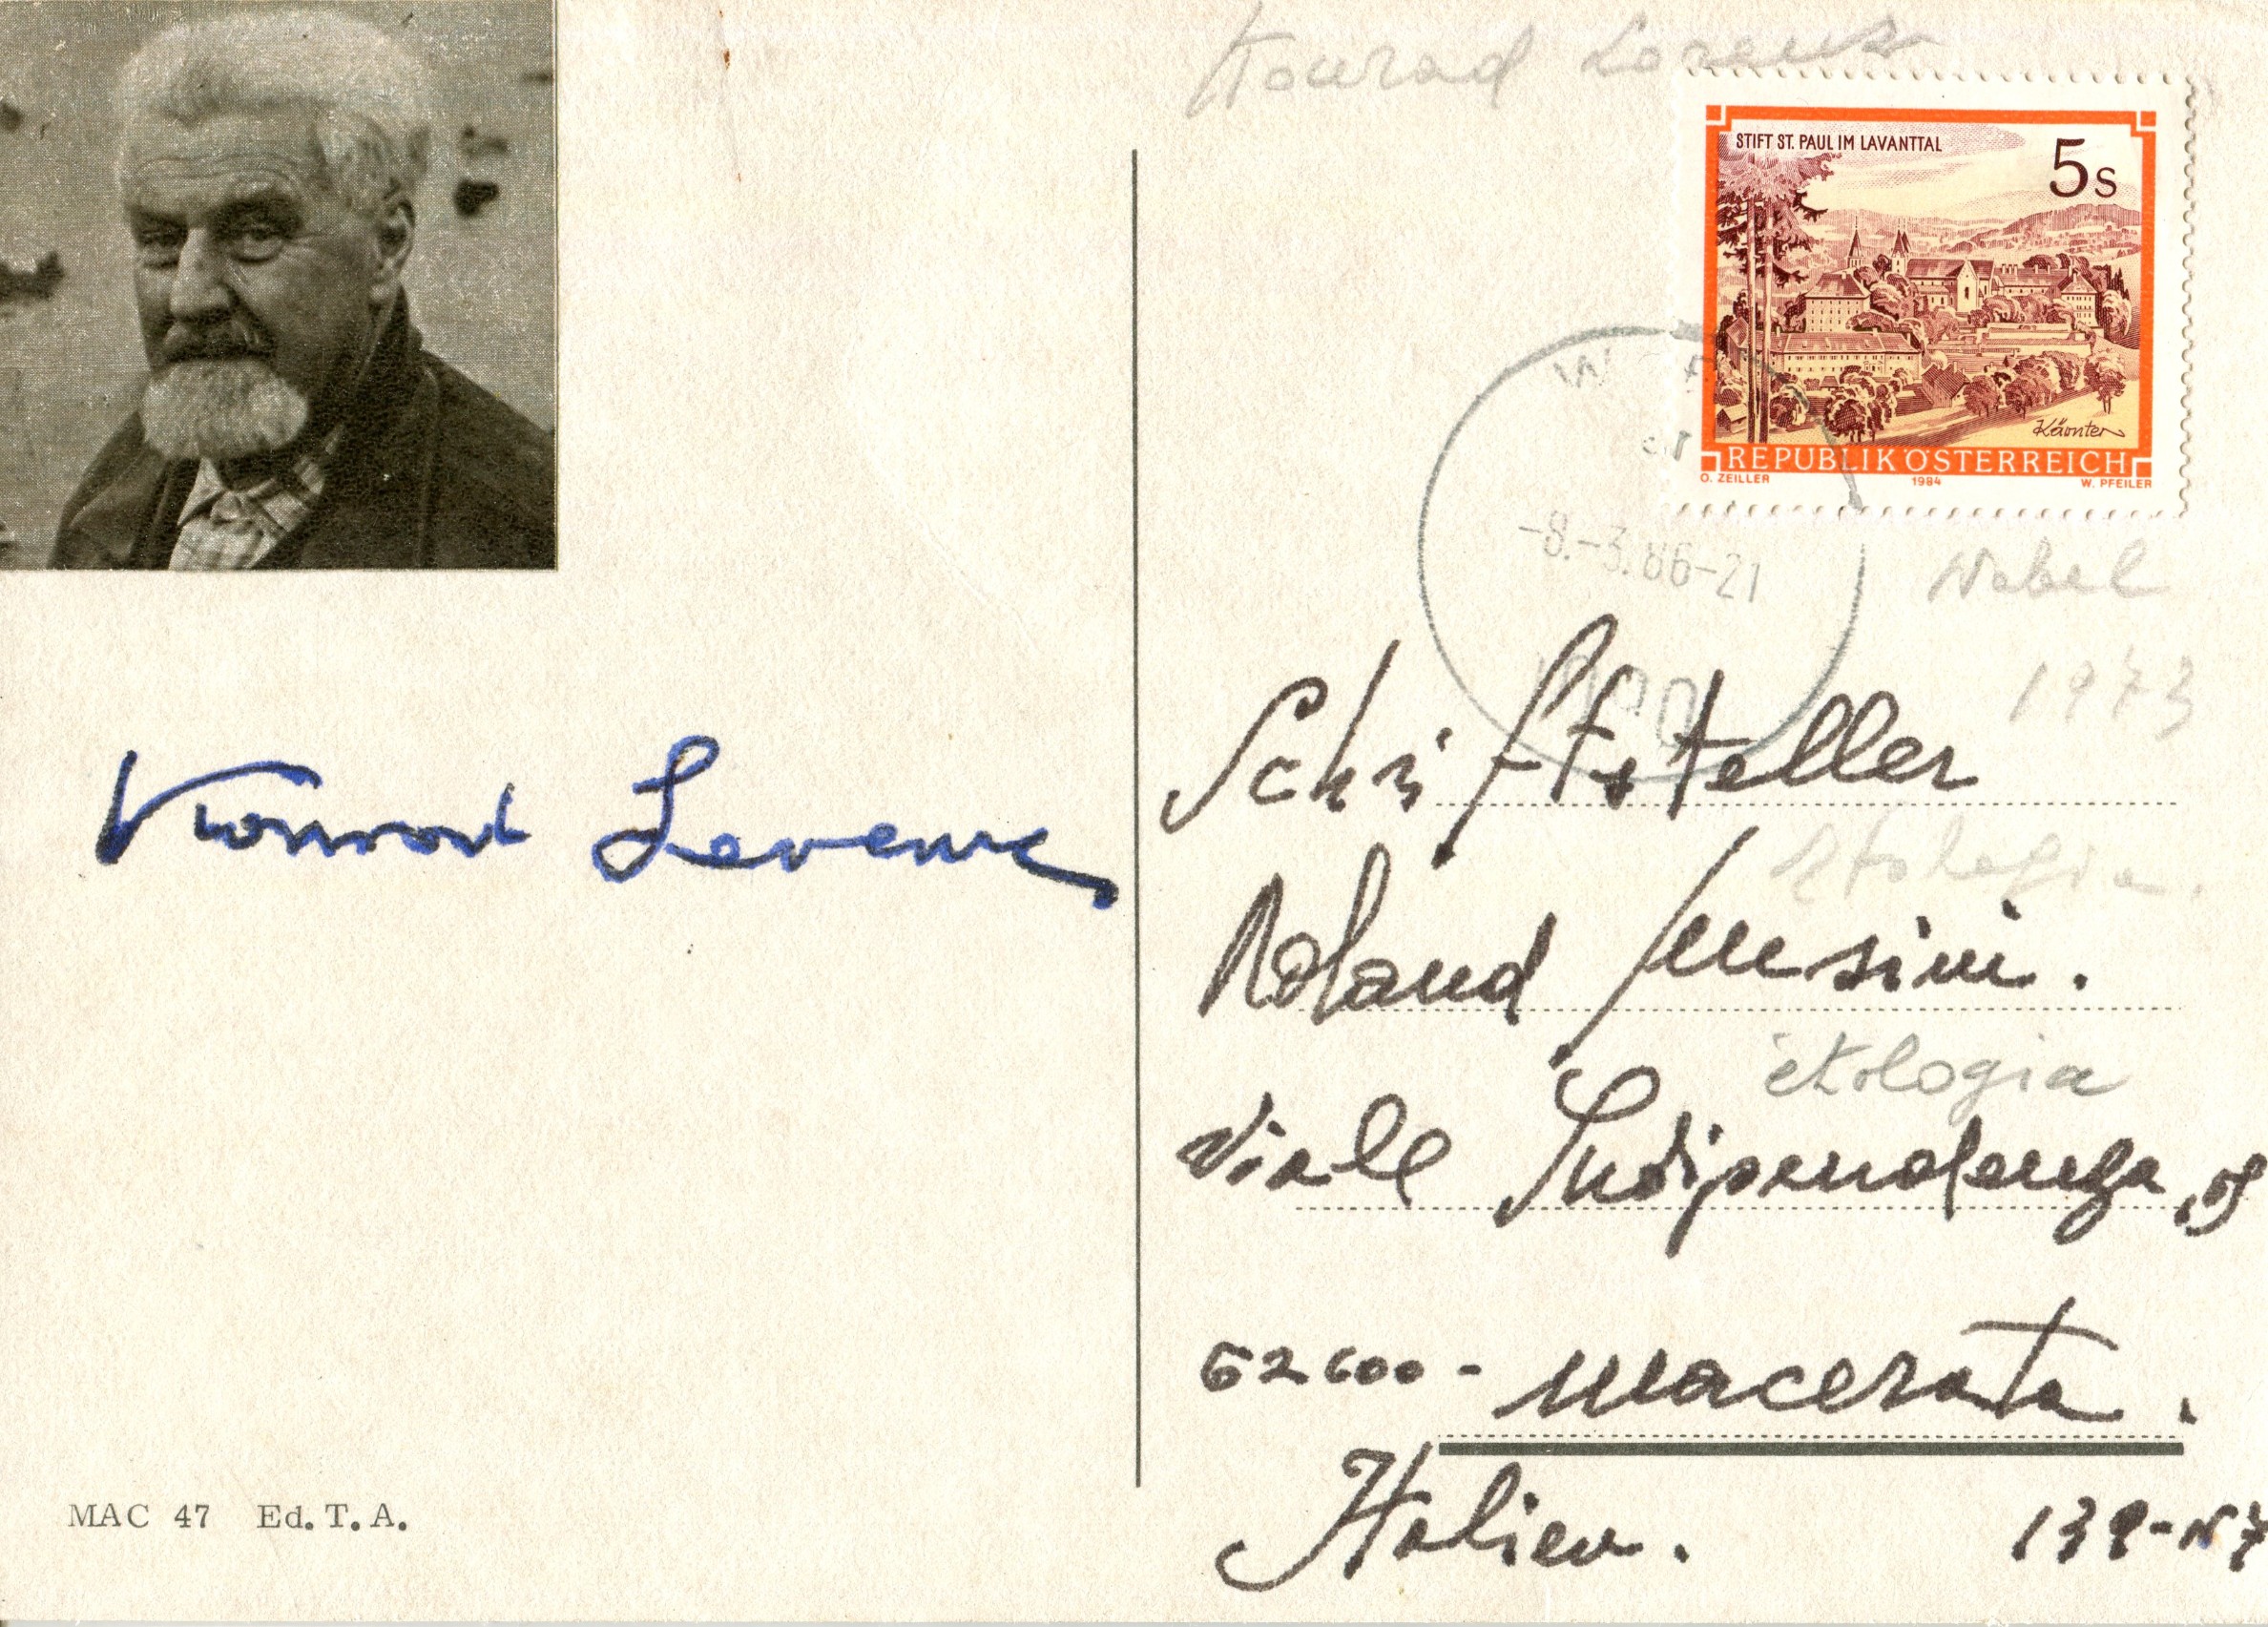 Konrad Lorenz
STIFT ST. PAUL IM LAVANTTAL
5s
Kärnten
REPUBLIK ÖSTERREICH
O. ZEILLER 1984 W. PFEILER
-8.-3.86-21
Nobel
1973
Schriftsteller
Etologia.
Roland
etologia
Viale Indipendenza,
62100 - Macerata.
Italien.
Konrad Lorenz
MAC 47 Ed. T. A.